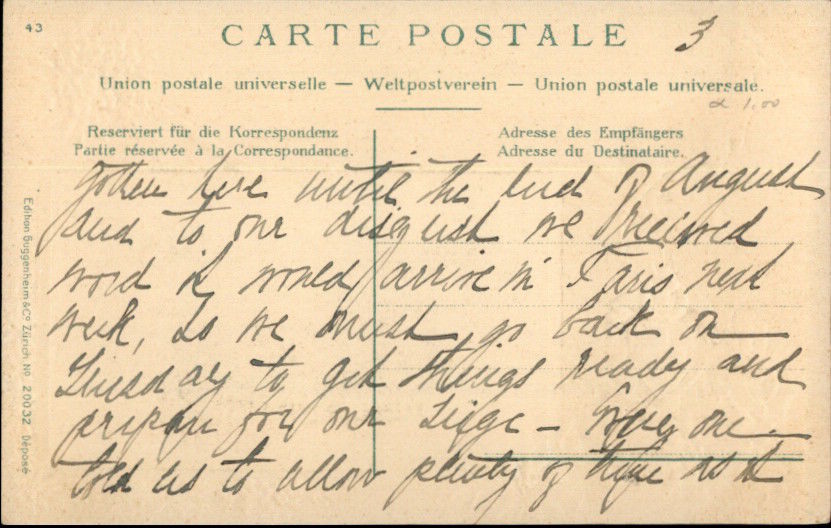 43
CARTE POSTALE
3
Union postale universelle — Weltpostverein — Union postale universale.
1.00
Reserviert für die Korrespondenz
Partie réservée à la Correspondance.
Adresse des Empfängers
Adresse du Destinataire.
gotten here until the end of August
and to our disgust we received
word it would arrive in Paris next
week, so we must go back on
Tuesday to get things ready and
prepare for our siege – Every one
told us to allow plenty of time as it
Edition Guggenheim & Co Zürich No 20032 Déposé